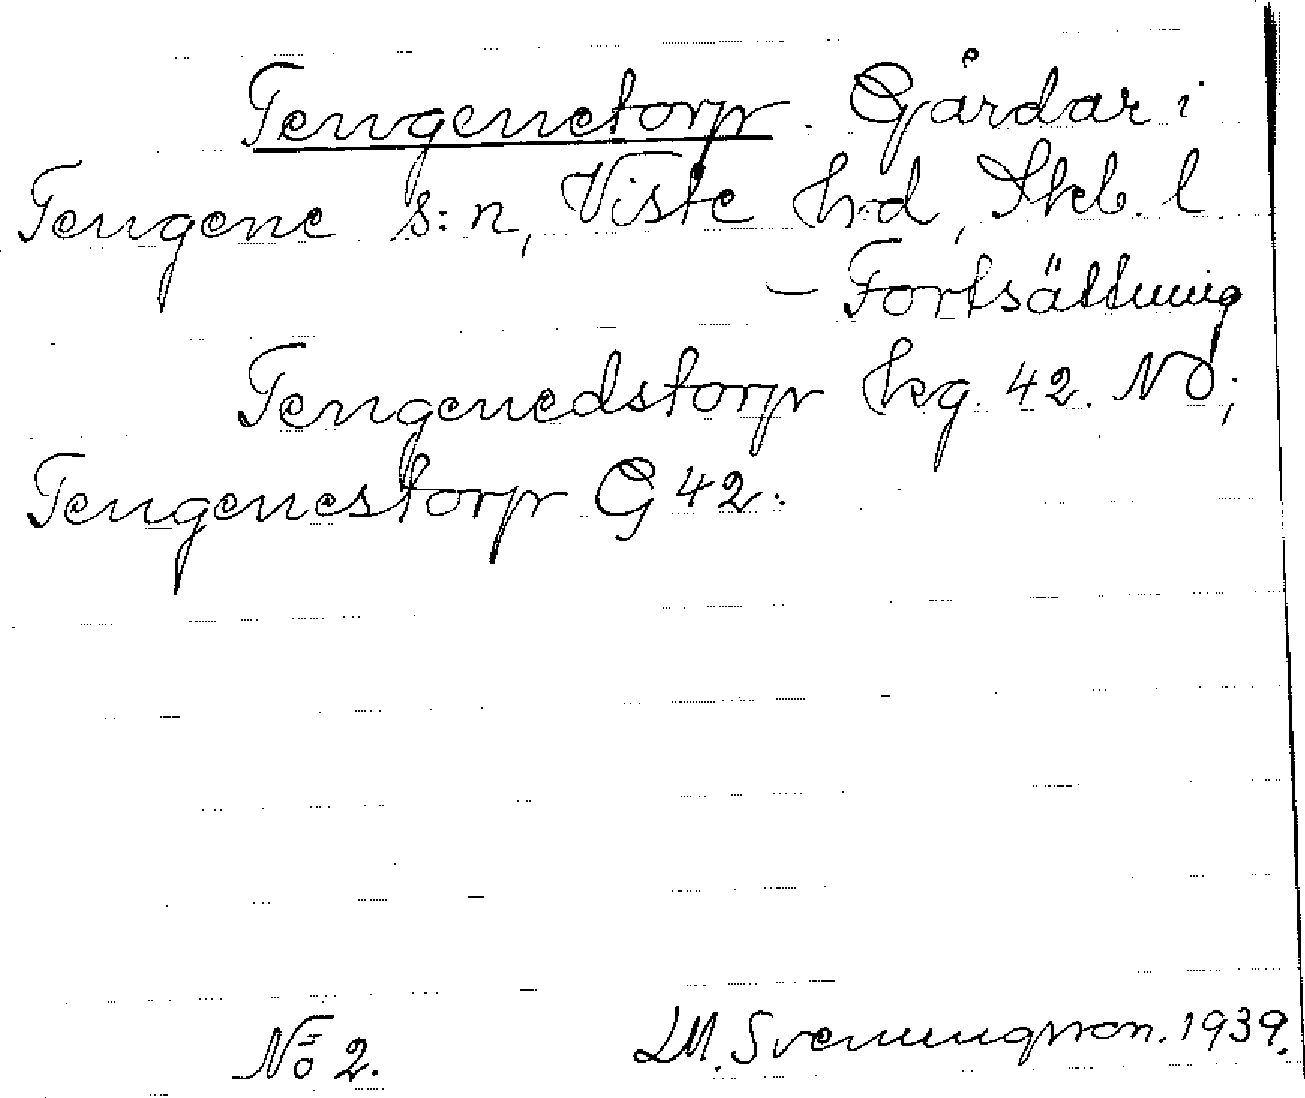 Tengenetorp. Gårdar i
Tengene s:n, Viste h:d, Skb. l
– Fortsättning
Tengenedstorp hkg. 42. NO;
Tengenestorp G 42.
No 2.
LM. Svenungsson. 1939.